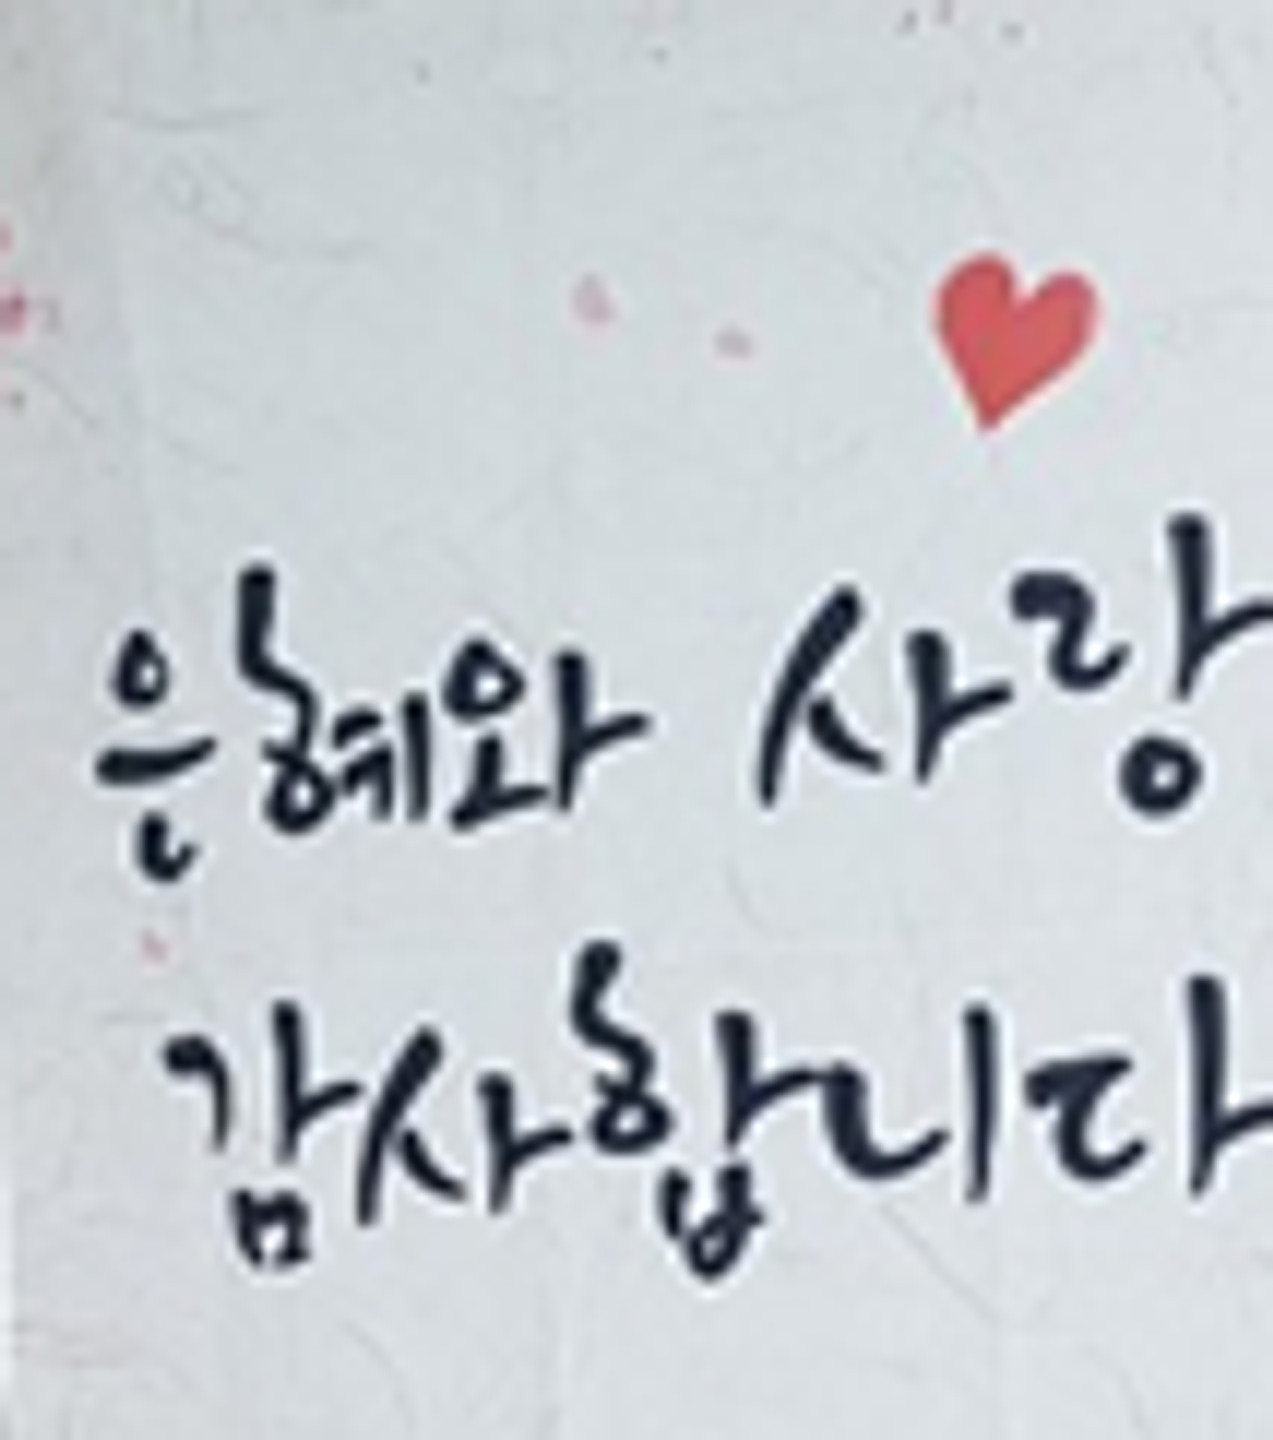 은혜와 사랑
감사합니다